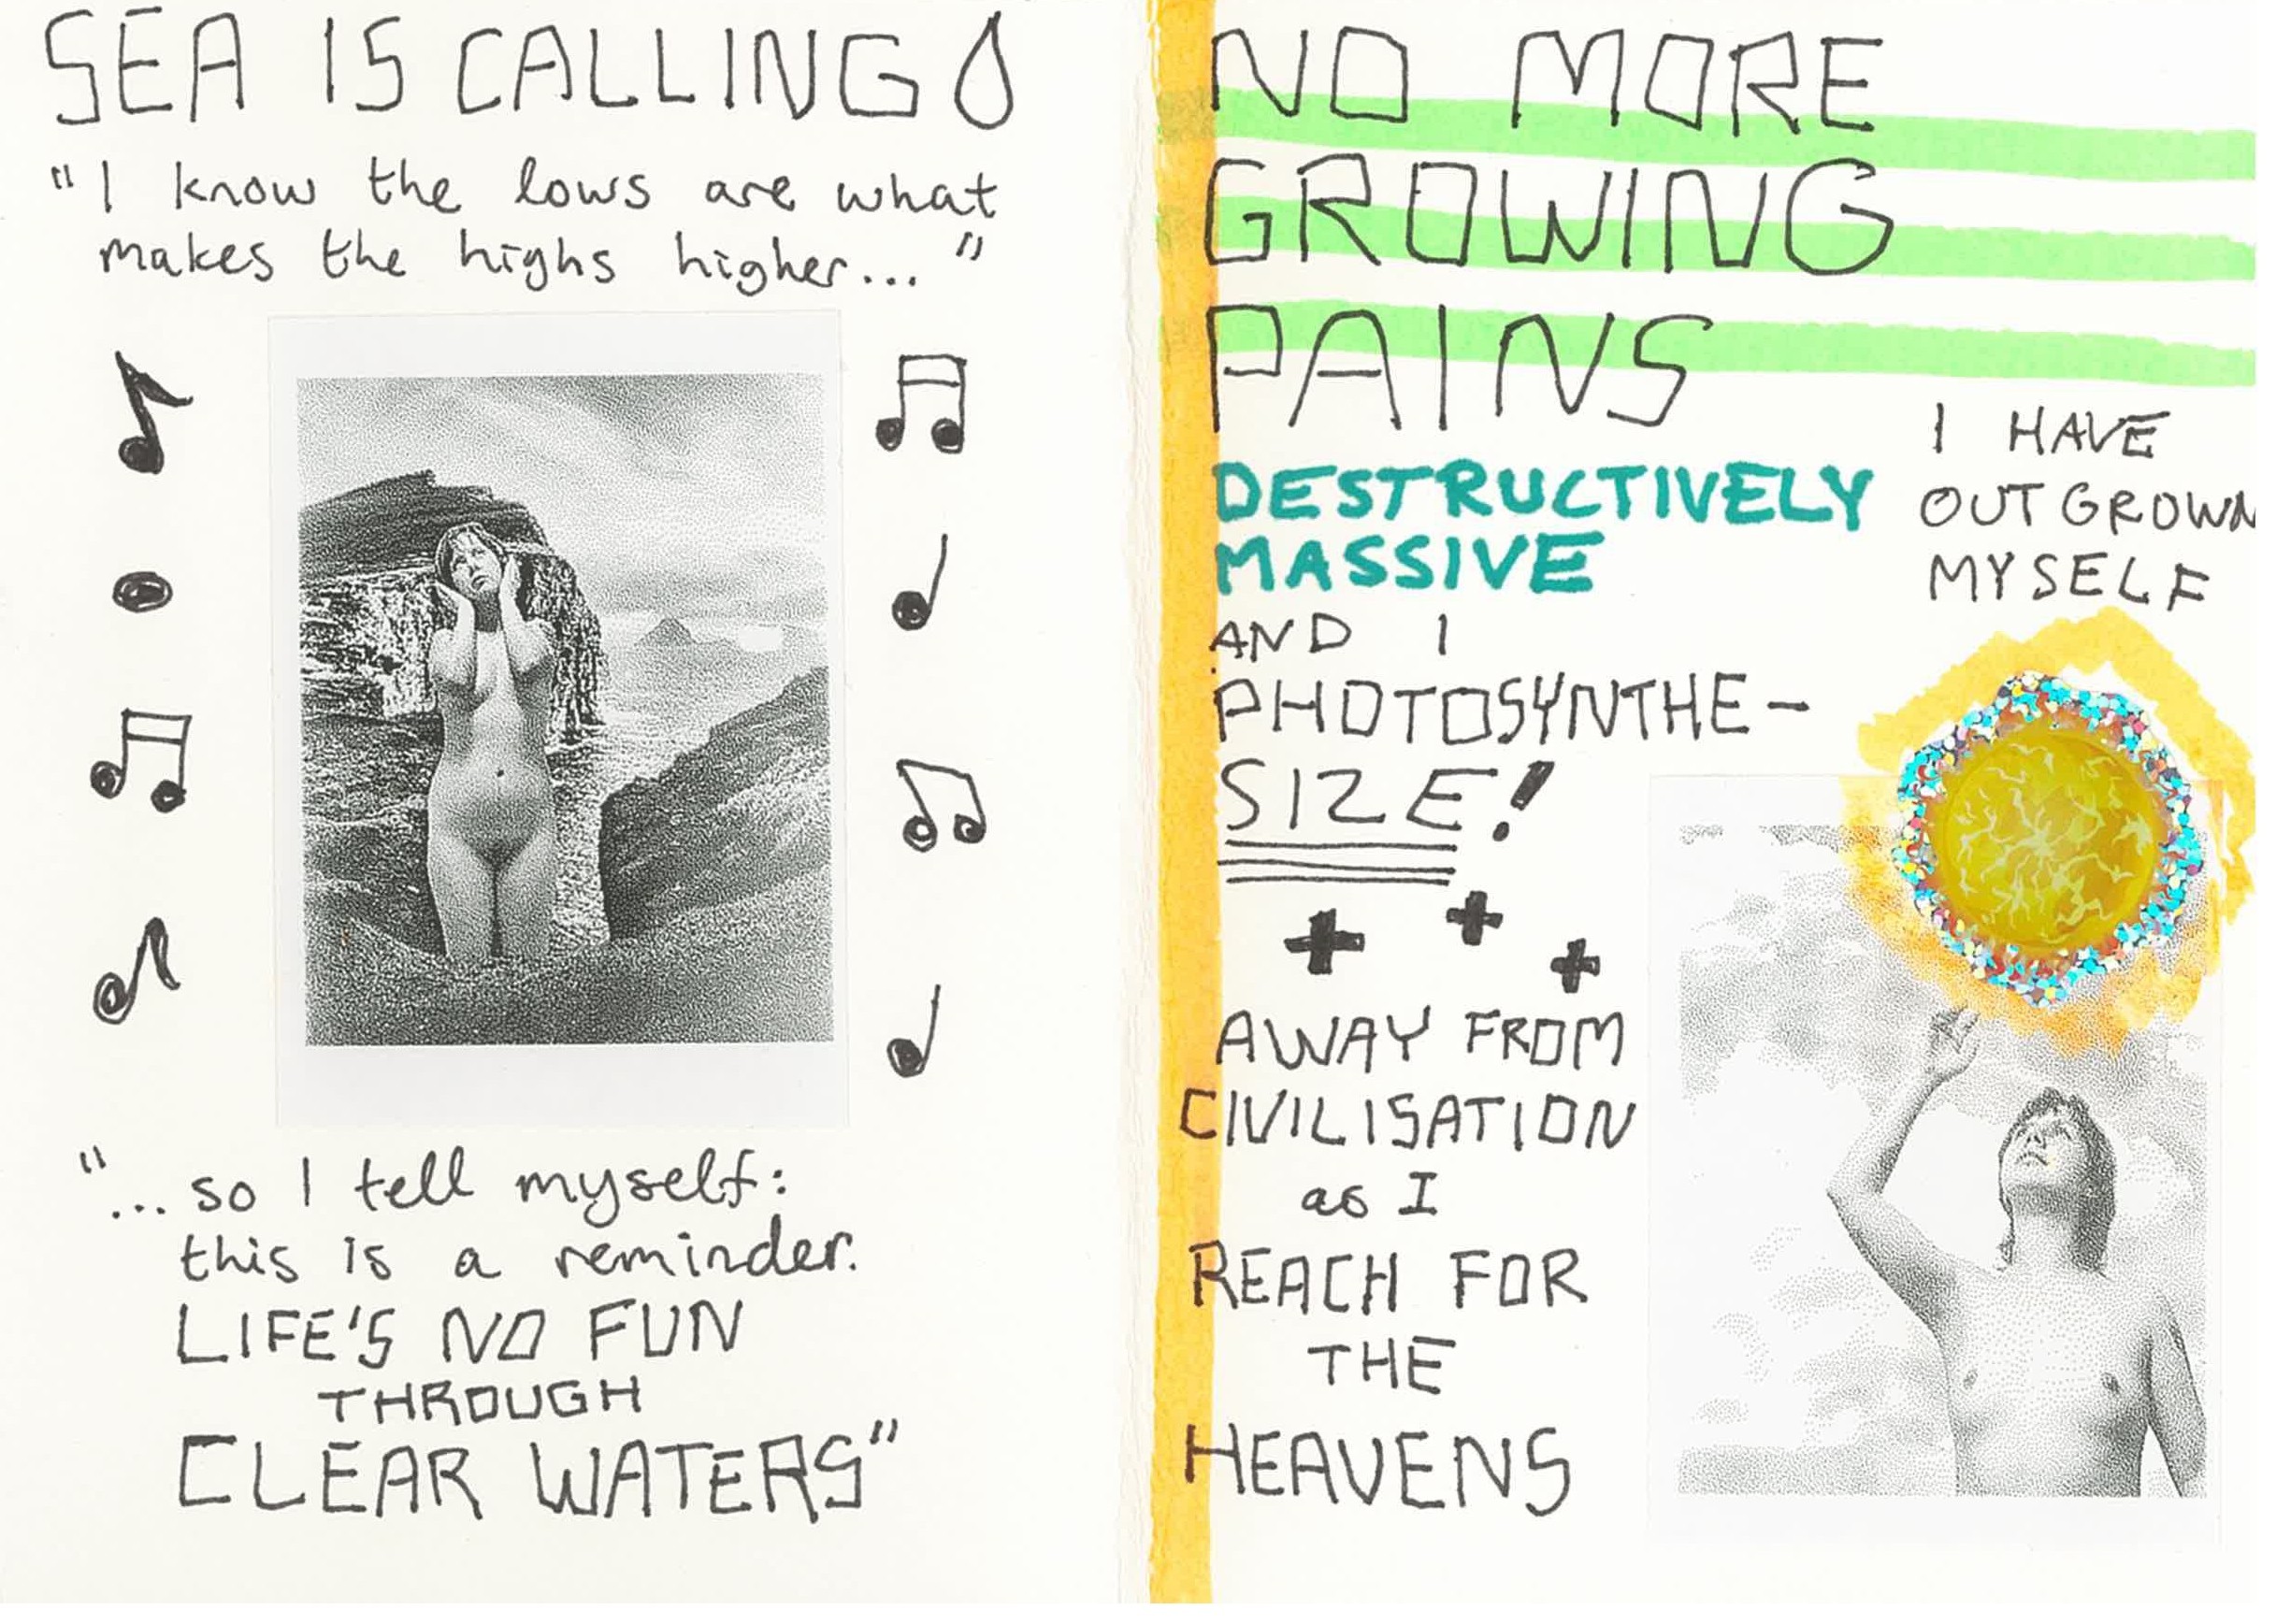 SEA IS CALLING
"I know the lows are what
makes the highs higher..."
"...so I tell myself:
this is a reminder.
LIFE'S NO FUN
THROUGH
CLEAR WATERS"
NO MORE
GROWING
PAINS
DESTRUCTIVELY
MASSIVE
AND I
PHOTOSYNTHE-
SIZE!
I HAVE
OUTGROWN
MYSELF
AWAY FROM
CIVILISATION
as I
REACH FOR
THE
HEAVENS